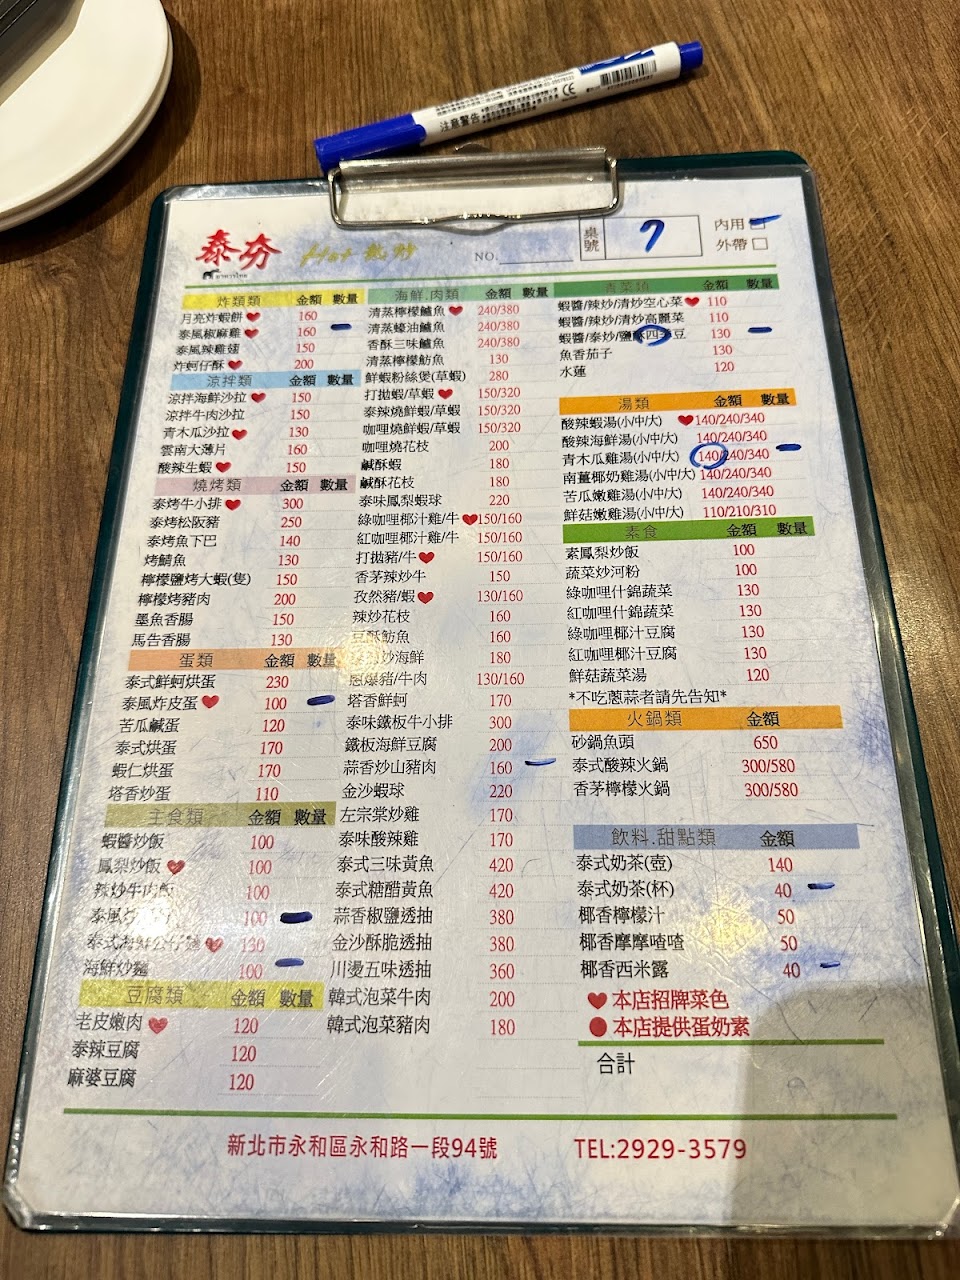 注意警告
泰夯
Hot 熱炒
NO.
桌號
7
內用
外帶
炸類類 金額 數量
月亮炸蝦餅 160
泰風椒麻雞 160
泰風辣雞翅 150
炸蚵仔酥 200
涼拌類 金額 數量
涼拌海鮮沙拉 150
涼拌牛肉沙拉 150
青木瓜沙拉 130
雲南大薄片 160
酸辣生蝦 150
燒烤類 金額 數量
泰烤牛小排 300
泰烤松阪豬 250
泰烤魚下巴 140
烤鯖魚 130
檸檬鹽烤大蝦(隻) 150
檸檬烤豬肉 200
墨魚香腸 150
馬告香腸 130
蛋類 金額 數量
泰式鮮蚵烘蛋 230
泰風炸皮蛋 100
苦瓜鹹蛋 120
泰式烘蛋 170
蝦仁烘蛋 170
塔香炒蛋 110
主食類 金額 數量
蝦醬炒飯 100
鳳梨炒飯 100
辣炒牛肉飯 100
泰風炒 100
泰式海鮮 130
海鮮炒麵 100
豆腐類 金額 數量
老皮嫩肉 120
泰辣豆腐 120
麻婆豆腐 120
海鮮.肉類 金額 數量
清蒸檸檬鱸魚 240/380
清蒸蠔油鱸魚 240/380
香酥三味鱸魚 240/380
清蒸檸檬魴魚 130
鮮蝦粉絲煲(草蝦) 280
打拋蝦/草蝦 150/320
泰辣燒鮮蝦/草蝦 150/320
咖哩燒鮮蝦/草蝦 150/320
咖哩燒花枝 200
鹹酥蝦 180
鹹酥花枝 180
泰味鳳梨蝦球 220
綠咖哩椰汁雞/牛 150/160
紅咖哩椰汁雞/牛 150/160
打拋豬/牛 150/160
香茅辣炒牛 150
孜然豬/蝦 130/160
辣炒花枝 160
豆酥魴魚 160
炒海鮮 180
蔥爆豬/牛肉 130/160
塔香鮮蚵 170
泰味鐵板牛小排 300
鐵板海鮮豆腐 200
蒜香炒山豬肉 160
金沙蝦球 220
左宗棠炒雞 170
泰味酸辣雞 170
泰式三味黃魚 420
泰式糖醋黃魚 420
蒜香椒鹽透抽 380
金沙酥脆透抽 380
川燙五味透抽 360
韓式泡菜牛肉 200
韓式泡菜豬肉 180
青菜類 金額 數量
蝦醬/辣炒/清炒空心菜 110
蝦醬/辣炒/清炒高麗菜 110
蝦醬/泰炒/鹽酥四季豆 130
魚香茄子 130
水蓮 120
湯類 金額 數量
酸辣蝦湯(小/中/大) 140/240/340
酸辣海鮮湯(小/中/大) 140/240/340
青木瓜雞湯(小/中/大) 140/240/340
南薑椰奶雞湯(小/中/大) 140/240/340
苦瓜嫩雞湯(小/中/大) 140/240/340
鮮菇嫩雞湯(小/中/大) 110/210/310
素食 金額 數量
素鳳梨炒飯 100
蔬菜炒河粉 100
綠咖哩什錦蔬菜 130
紅咖哩什錦蔬菜 130
綠咖哩椰汁豆腐 130
紅咖哩椰汁豆腐 130
鮮菇蔬菜湯 120
*不吃蔥蒜者請先告知*
火鍋類 金額
砂鍋魚頭 650
泰式酸辣火鍋 300/580
香茅檸檬火鍋 300/580
飲料.甜點類 金額
泰式奶茶(壺) 140
泰式奶茶(杯) 40
椰香檸檬汁 50
椰香摩摩喳喳 50
椰香西米露 40
本店招牌菜色
本店提供蛋奶素
合計
新北市永和區永和路一段94號 TEL:2929-3579